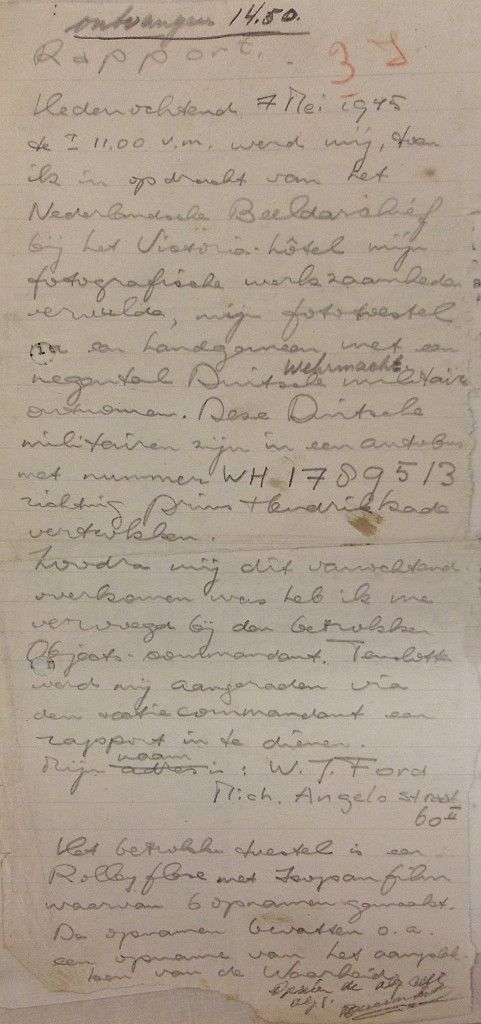 ontvangen 14.50.
Rapport.
37
Hedenochtend 7 Mei 1945
te ± 11.00 v.m. werd mij, toen
ik in opdracht van het
Nederlandsche Beeldarchief
bij het Victoria-hôtel mijn
fotografische werkzaamheden
vervulde, mijn fototoestel
en een handgemeen met een
negental Duitsche Wehrmacht militairen
ontnomen. Deze Duitsche
militairen zijn in een autobus
met nummer WH 1789513
richting Prins Hendrikkade
vertrokken.
Zoodra mij dit vanochtend
overkomen was heb ik me
vervoegd bij den betrokken
Objects-commandant. Tenslotte
werd mij aangeraden via
den commandant een
rapport in te dienen.
Mijn adres naam is: W.J. Ford
Mich. Angelo straat
60 II
Het betrokken toestel is een
Rolleyflex met Isopan film
waarvan 6 opnamen gemaakt.
De opnamen bevatten o.a.
een opname van het aanplak-
ken van de Waarheid